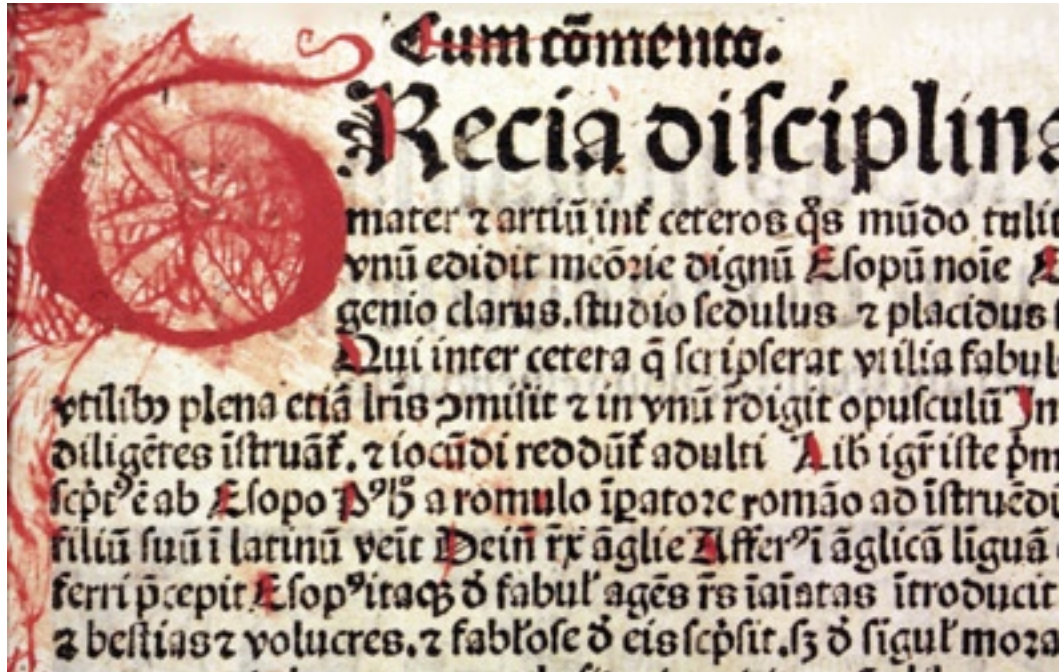 Cum cõmento.
GRecia disciplina
mater ⁊ artiũ int̃ ceteros q̃s mũdo tuli
vnũ edidit meõrie dignũ Esopũ noĩe E
genio clarus.studio sedulus ⁊ placidus
Qui inter cetera q̃ scripserat vtilia fabul
vtilibꝫ plena etiã lr̃is ꝯmisit ⁊ in vnũ rdigit opusculũ In
diligẽtes ĩstruãt̃. ⁊ iocũdi reddũt̃ adulti Lib igr̃ iste p̃m
scp̃tꝰ ẽ ab Esopo Pꝰ hͦ a romulo ĩꝑatore romão ad ĩstruẽdu
filiũ suũ ĩ latinũ veĩt Dein̄ rx̃ ãglie Afferꝰ ĩ ãglicã lĩguã
ferri p̃cepit Esopꝰ itaqꝫ đ fabuł agẽs rs̃ ĩaĩatas ĩtroducit
⁊ bestias ⁊ volucres. ⁊ fabłose đ eis scp̃sit. sꝫ đ siguł mora